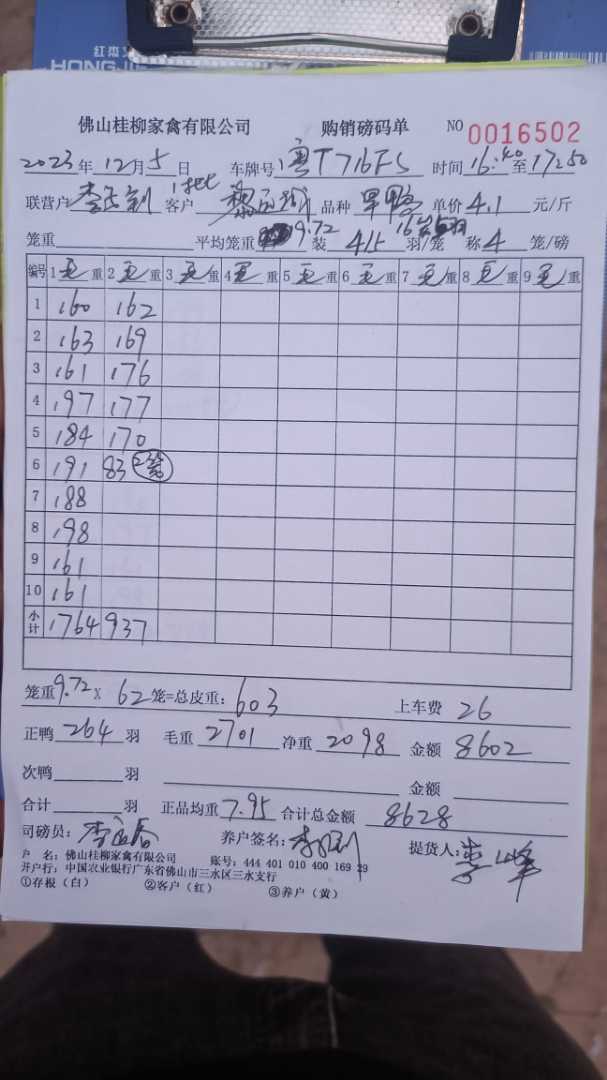 红杰
HONGJI
佛山桂柳家禽有限公司 购销磅码单 NO 0016502
2023年12月5日 车牌号 粤T716F5 时间16:40至17:50
联营户 李 剑 客户 品种 旱鸭 单价4.1 元/斤
笼重 平均笼重 9.72 装 4/5 羽/笼 称4 笼/磅
编号 1毛重 2毛重 3毛重 4毛重 5毛重 6毛重 7毛重 8毛重 9毛重
1 160 162
2 163 169
3 161 176
4 197 177
5 184 170
6 191 83
7 188
8 198
9 161
10 161
小计 1764 937
笼重9.72 x 62笼=总皮重:603 上车费 26
正鸭 264 羽 毛重 2701 净重 2098 金额 8602
次鸭 羽 金额
合计 羽 正品均重7.95 合计总金额 8628
司磅员: 养户签名: 提货人:李峰
户 名:佛山桂柳家禽有限公司 账号:444 401 010 400 169 29
开户行:中国农业银行广东省佛山市三水区三水支行
①存根(白) ②客户(红) ③养户(黄)